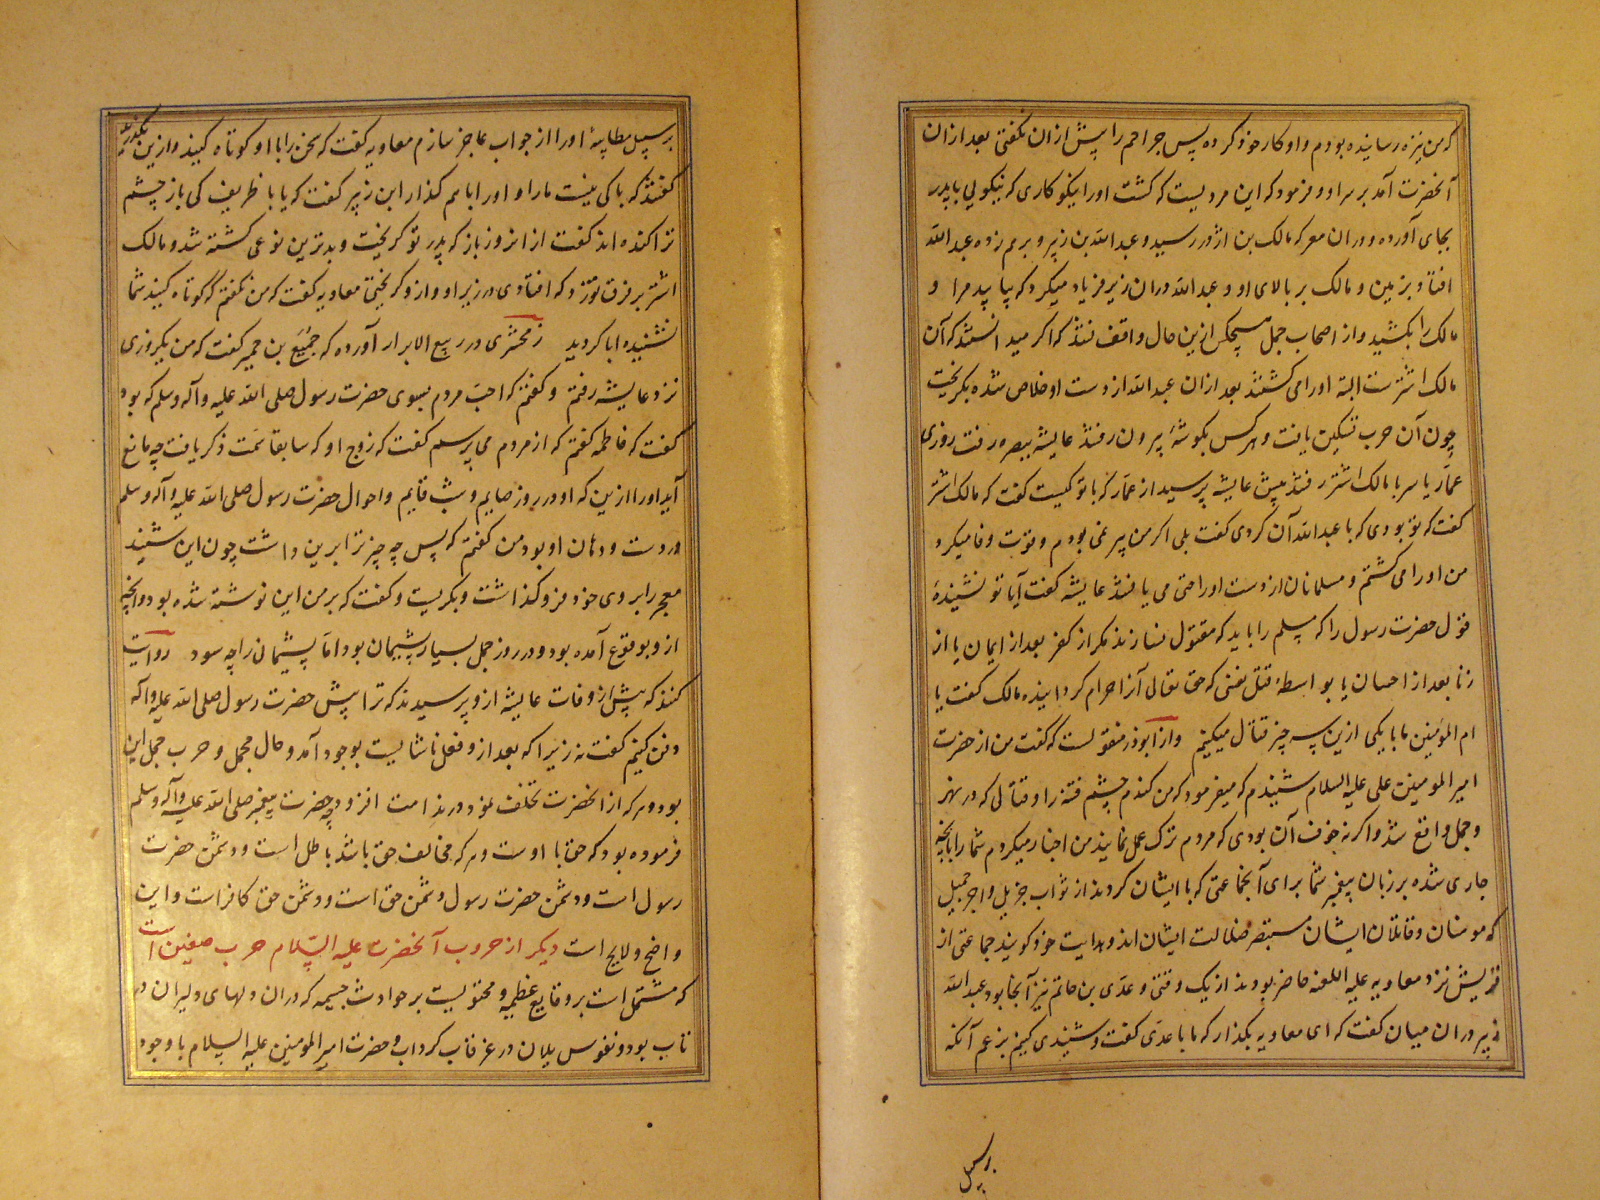 که من نیزه رسانیده بودم و او کار خود کرده پس چرا حمرا پیش ازان نکفتی بعد ازان
آنحضرت آمد بر سر او و فرمود که این مردیست که کشت او را نیکو کاری که نیکویی با پدر
بجای آورده و دران معرکه مالک بن اژدر رسید و عبدالله بن زبیر و بر هم زده عبدالله
افتاد بزمین و مالک بر بالای او و عبدالله دران زیر فریاد میکرد که بیایید مرا و
مالک را بکشید و از اصحاب جمل هیچکس ازین حال واقف نشد که اکر میدانستند که آن
مالک اشتر ست البته او را می کشتند بعد ازان عبدالله از دست او خلاص شده بکریخت
چون آن حرب تسکین یافت و هر کس بکوشهٔ بیرون رفتند عایشه ببصره رفت روزی
عمار یاسر با مالک اشتر رفتند پیش عایشه پرسید از عمار که با تو کیست کفت که مالک اشتر
کفت که تو بودی که با عبدالله آن کردی کفت بلی اکر من پیر نمی بودم و قوت وفا میکرد
من او را می کشتم و مسلمانان از دست او راحتی می یافتند عایشه کفت آیا تو نشنیدهٔ
قول حضرت رسول را که مسلم را باید که مقتول نسازند مکر از کفر بعد از ایمان یا از
زنا بعد از احسان یا بواسطهٔ قتل نفسی که حق تعالی آنرا حرام کردانیده مالک کفت یا
ام المؤمنین ما با یکی ازین سه چیز قتال میکنیم و از ابوذر منقولست که کفت من از حضرت
امیر المومنین علی علیه السلام شنیدم که میفرمود که من کندم چشم فتنه را و قتالی که در نهر
و جمل واقع شد و اکر نه خوف آن بودی که مردم ترک عمل نمایند من اخبار میکردم شما را بانچه
جاری شده بر زبان پیغمبر شما برای آنجماعتی که با ایشان کردند از ثواب جزیل و اجر جمیل
که مومنان و قاتلان ایشان مستبصر ضلالت ایشان اند و هدایت خود کویند جماعتی از
قریش نزد معاویه علیه اللعنه حاضر بودند از یک وقتی و عدی بن حاتم نیز آنجا بود عبدالله
زبیر دران میان کفت که ای معاویه بکذار که ما با عدی کفت و شنیدی کنیم بزعم آنکه
بر سبیل
بر سبیل مطایبه او را از جواب عاجز سازم معاویه کفت که سخن را با او کوتاه کنید و ازین بگذرید
کفتند که باکی نیست ما را و او را با هم کذار ابن زبیر کفت که یا با ظریف کی باز چشم
ترا کنده اند کفت از انروز باز که پدر تو کریخت و بدترین نوعی کشته شد و مالک
اشتر بر فرق تو زد که افتادی در زیر او و از و کریختی معاویه کفت که من نکفتم که کوتاه کنید شما
نشنیده ابا کردید زمخشری در ربیع الابرار آورده که جمیع بن عمیر کفت که من یکروزی
نزد عایشه رفتم و کفتم که احب مردم بسوی حضرت رسول صلی الله علیه و آله وسلم که بود
کفت که فاطمه کفتم که از مردم می پرسم کفت که زوج او که سابقا سمت ذکر یافت چه مانع
آید او را ازین که او در روز صایم و شب قایم و احوال حضرت رسول صلی الله علیه و آله وسلم
در دست و دهان او بود من کفتم که پس چه چیز ترا برین داشت چون این شنید
معجر را بر وی خود فرو کذاشت و بکریست و کفت که بر من این نوشته شده بود و انچه
از و بوقوع آمده بود و در روز جمل بسیار پشیمان بود اما پشیمانرا چه سود روایت
کنند که پیش از وفات عایشه از و پرسیدند که ترا پیش حضرت رسول صلی الله علیه و آله
دفن کنیم کفت نه زیرا که بعد از و فعل ناشایست بوجود آمد و حال مجمل و حرب جمل این
بود و هر که از آنحضرت تخلف نمود در ندامت افزود چه حضرت پیغمبر صلی الله علیه و آله وسلم
فرموده بود که حق با اوست و هر که مخالف حق باشد باطل است و دشمن حضرت
رسول است و دشمن حضرت رسول دشمن حق است و دشمن حق کافر است و این
واضح و لایح است دیکر از حروب آنحضرت علیه السلام حرب صفین است
که مشتمل است بر وقایع عظیمه و محتویست بر حوادث جسیمه که دران دلهای دلیران در
تاب بود و نفوس یلان در غرقاب کرداب و حضرت امیر المومنین علیه السلام با وجود